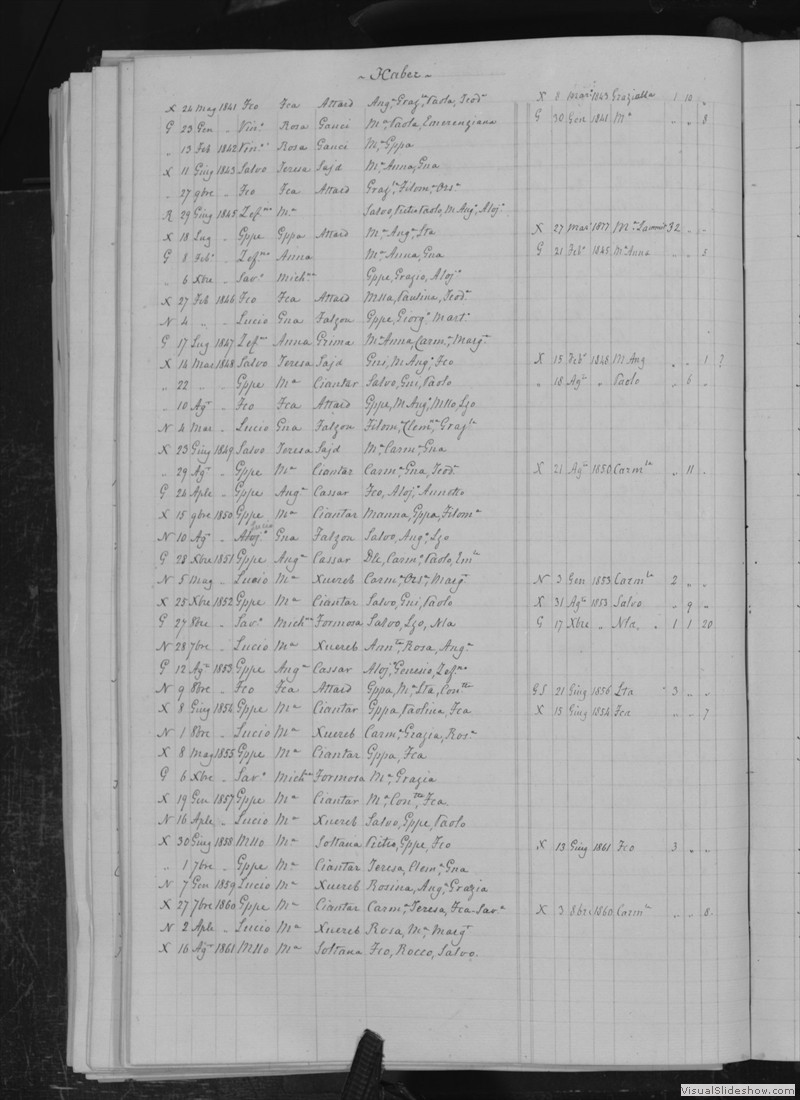 ~ Xaber ~
X 24 Mag 1841 Fco Fca Attard Angª Grazª Paola, Teodª X 8 Marº 1843 Graziella 1 10 "
G 23 Gen " Vinº Rosa Gauci Mª Paola, Emerenziana G 30 Gen 1841 Mª " " 8
" 13 Feb 1842 Vinº Rosa Gauci Mª Gppa
X 11 Giug 1843 Salvo Teresa Sajd Mª Anna, Gna
" 27 9bre " Fco Fca Attard Grazª, Filomª Orsª
R 29 Giug 1845 Zefno Mª Salvo, Pietro Paolo, M Angº Alojº
X 18 Lug " Gppe Gppa Attard Mª Angª Lta X 27 Marº 1877 Mª 32 " "
G 8 Febº " Zefno Anna Mª Anna, Gna G 21 Febº 1845 Mª Anna " " 3
" 6 Xbre " Savº Michna Gppe, Grazio, Alojº
X 27 Feb 1846 Fco Fca Attard Mlla, Paulina, Teodª
N 4 " " Lucio Gna Falzon Gppe, Giorgº Martº
G 17 Lug 1847 Zefno Anna Grima Mª Anna Carmª Margª
X 14 Mar 1848 Salvo Teresa Sajd Gni, M Angº Fco X 15 Febº 1848 M Ang " " 1 ?
" 22 " " Gppe Mª Ciantar Salvo, Gni, Paolo " 18 Agº " Paolo " 6 "
" 10 Agº " Fco Fca Attard Gppe, M Angº Mllo, Lzo
N 4 Mar " Lucio Gna Falzon Filomª, Clemª Grazla
X 23 Giug 1849 Salvo Teresa Sajd Mª Carmª Gna
" 29 Agº " Gppe Mª Ciantar Carmª Gna, Teodª X 21 Agº 1850 Carmla " 11 "
G 24 Aple " Gppe Angª Cassar Fco, Alojº Annetto
X 15 9bre 1850 Gppe Mª Ciantar Marina, Gppa, Filomª
Lucio
N 10 Agº " Alojº Gna Falzon Salvo, Angº Lzo
G 28 Xbre 1851 Gppe Angª Cassar Carmº Paolo, Emle
N 5 Mag " Lucio Mª Xuereb Carmª Orsª Margª N 3 Gen 1853 Carmla 2 " "
X 25 Xbre 1852 Gppe Mª Ciantar Salvo, Gni, Paolo X 31 Agº 1853 Salvo " 9 "
G 27 8bre " Savº Michna Formosa Salvo, Lzo, Nla G 17 Xbre " Nla, 1 1 20
N 28 7bre " Lucio Mª Xuereb Annta, Rosa, Angª
G 12 Agº 1853 Gppe Angª Cassar Alojº Genesio, Zefno
N 9 8bre " Fco Fca Attard Gppa, Mª Lta, Contta GS 21 Giug 1856 Lta 3 " "
X 8 Giug 1854 Gppe Mª Ciantar Gppa, Paolina, Fca X 15 Giug 1854 Fca " " 7
N 1 8bre " Lucio Mª Xuereb Carmª Grazia, Rosª
X 8 Mag 1855 Gppe Mª Ciantar Gppa, Fca
G 6 Xbre " Savº Michna Formosa Mª Grazia
X 19 Gen 1857 Gppe Mª Ciantar Mª Contta, Fca
N 16 Aple " Lucio Mª Xuereb Salvo, Gppe, Paolo
X 30 Giug 1858 Mllo Mª Soltana Pietro, Gppe, Fco X 13 Giug 1861 Fco 3 " "
" 1 7bre " Gppe Mª Ciantar Teresa, Clemª Gna
N 7 Gen 1859 Lucio Mª Xuereb Rosina, Angª Grazia
X 27 7bre 1860 Gppe Mª Ciantar Carmª Teresa, Fca Savª X 3 8bre 1860 Carmla " " 8
N 2 Aple " Lucio Mª Xuereb Rosa, Mª Margª
X 16 Agº 1861 Mllo Mª Soltana Fco, Rocco, Salvo.
VisualSlideshow.com